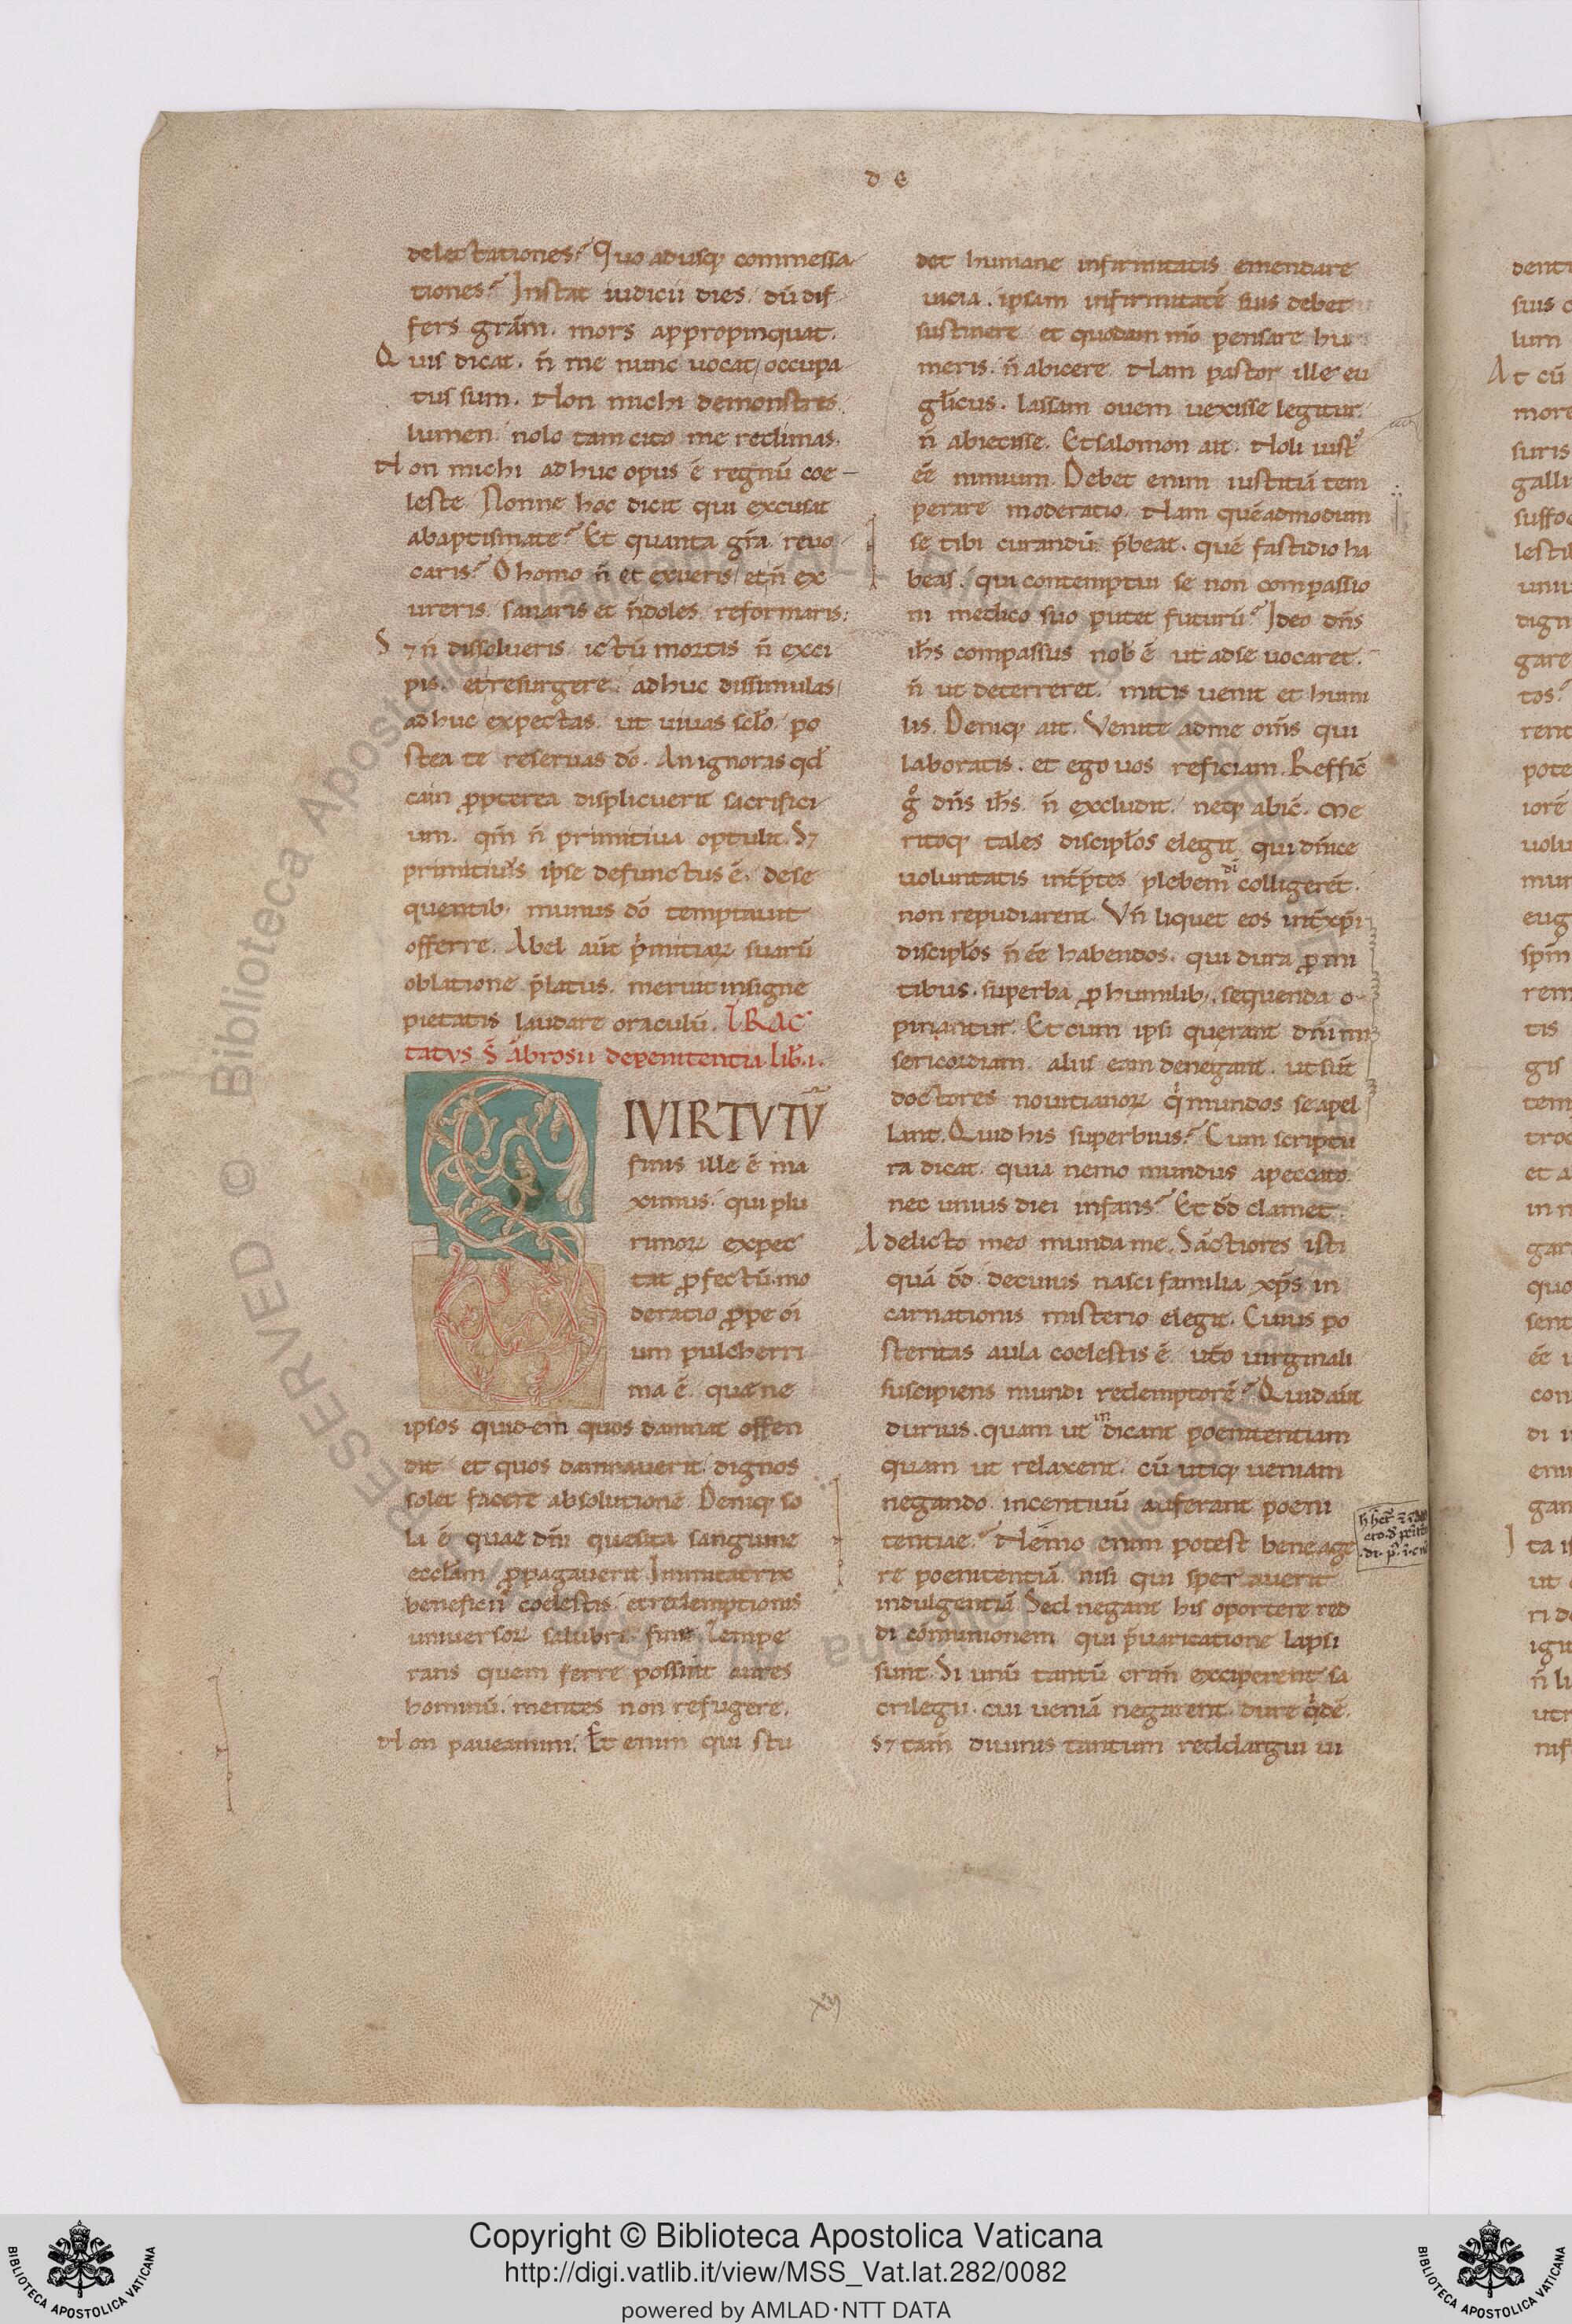 d e
delectationes? Quo adusq; commessa-
tiones? Instat iudicii dies. dū dif
fers grām. mors appropinquat.
Quis dicat. n̄ me nunc uocat, occupa
tus sum. Non michi demonstres
lumen. nolo tam cito me redimas.
Non michi adhuc opus ē regnū coe-
leste. Nonne hoc dicit qui excusat
abaptismate? Et quanta grā. reuo
caris? O homo n̄ et exueris, et n̄ ex
ureris. sanaris et n̄ doles. reformaris:
S⁊ n̄ dissolueris. ictū mortis n̄ exci
pis. et resurgere. adhuc dissimulas,
adhuc expectas. ut uiuas sclo. po
stea te reseruas dō. An ignoras qđ
cain ꝓpterea displicuerit sacrifici
um. qm̄ n̄ primitiua optulit. S⁊
primitiuis ipse defunctus ē. de se
quentib; munus dō temptauit
offerre. Abel aūt p̄mitiaꝝ suarū
oblatione p̄latus. meruit insigne
pietatis laudare oraculū. TRAC
tatvs S̄ ābrosii depenitentia. lib̄. i.
SI VIRTVTV̄
finis ille ē ma
ximus. qui plu
rimoꝝ expec
tat ꝓfectū. mo
deratio ꝓpe oī
um pulcherri
ma ē. quę ne
ipsos quidem quos damnat offen
dit. et quos damnauerit. dignos
solet facere absolutionē. Deniq; so
la ē quae dn̄i quesita sanguine
eccl̄am ꝓpagauerit. Imitatrix
beneficii coelestis. et redemptionis
uniuersoꝝ salubri fine. Tempe
rans quem ferre possint aures
hominū. mentes non refugere.
Non paueamini. Et enim qui stu
det humane infirmitatis emendare
uicia. ipsam infirmitatē suis debet
sustinere et quodam m̄o pensare hu
meris. n̄ abicere. Nam pastor ille eu
gl̄icus. lassam ouem uexisse legitur.
n̄ abiecisse. Et salomon ait. Noli iustꝰ
ēē nimium. Debet enim iustitiā tem
perare moderatio. Nam quēadmodum
se tibi curandū p̄beat. quē fastidio ha
beas. qui contemptui se non compassio
ni medico suo putet futurū? Ideo dn̄s
ih̄s compassus nob̄ ē ut ad se uocaret.
n̄ ut deterreret. mitis uenit et humi
lis. Deniq; ait. Venite ad me om̄s qui
laboratis. et ego uos reficiam. Reffic̄
g̊ dn̄s ih̄s. n̄ excludit. neq; abic̄. Me
ritoq; tales discipl̄os elegit. qui dn̄ice
uoluntatis int̄p̄tes plebem dī colligerēt.
non repudiarent. Vn̄ liquet eos int̄ xp̄i
discipl̄os n̄ ēē habendos. qui dura ꝓ mi
tibus. superba ꝓ humilib; sequenda o-
pinantur. Et cum ipsi querant dn̄i mi
sericordiam. aliis eam denegant. ut sūt
doctores nouitianoꝝ qͥ mundos se apel
lant. Quid his superbius? Cum scriptu
ra dicat. quia nemo mundus a peccato.
nec unius diei infans? Et dd̄ clamet.
A delicto meo munda me. Sāctiores isti
quā dd̄. de cuius nasci familia xp̄s in
carnationis misterio elegit. Cuius po
steritas aula coelestis ē. ut̄o uirginali
suscipiens mundi redemptorē? Quid aūt
durius. quam ut in dicant poenitentiam
quam ut relaxent. cū utiq; ueniam
negando. incentiuū auferant poeni
tentiae? Nemo enim potest bene age
re poenitentiā. nisi qui sperauerit
indulgentiā. Sed negant his oportere red
di cōmunionem qui p̄uaricatione lapsi
sunt. Si unū tantū crim̄ exciperent sa
crilegii. cui ueniā negarent. dure qͥdē.
S⁊ tam̄ diuinis tantum redclargui ui
xvj
RESERVED © Biblioteca Apostolica Vaticana
Copyright © Biblioteca Apostolica Vaticana
http://digi.vatlib.it/view/MSS_Vat.lat.282/0082
powered by AMLAD·NTT DATA
BIBLIOTECA APOSTOLICA VATICANA
BIBLIOTECA APOSTOLICA VATICANA